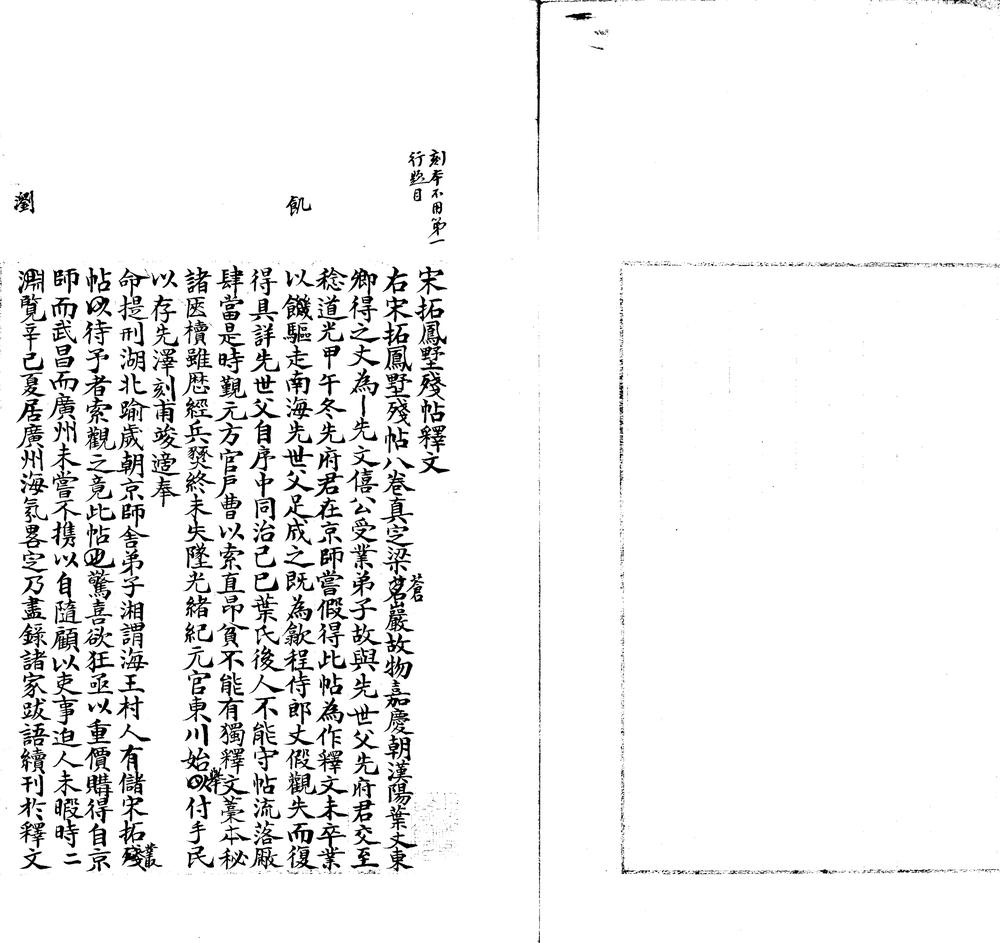 刻本不用第一
行題目
飢
瀏
宋拓鳳墅殘帖釋文
右宋拓鳳墅殘帖八卷真定梁蒼巖故物嘉慶朝漢陽葉丈東
卿得之丈為先文僖公受業弟子故與先世父先府君交至
稔道光甲午冬先府君在京師嘗假得此帖為作釋文未卒業
以饑驅走南海先世父足成之既為歙程侍郎丈假觀失而復
得具詳先世父自序中同治己巳葉氏後人不能守帖流落厰
肆當是時覲元方官戶曹以索直昂貧不能有獨釋文藁本秘
諸匧櫝雖歷經兵燹終未失墜光緒紀元官東川始舉付手民
以存先澤刻甫竣適奉
命提刑湖北踰歲朝京師舍弟子湘謂海王村人有儲宋拓叢
帖以待予者索觀之竟此帖也驚喜欲狂亟以重價購得自京
師而武昌而廣州未嘗不攜以自隨顧以吏事迫人未暇時二
淵覽辛巳夏居廣州海氛畧定乃盡錄諸家跋語續刊於釋文